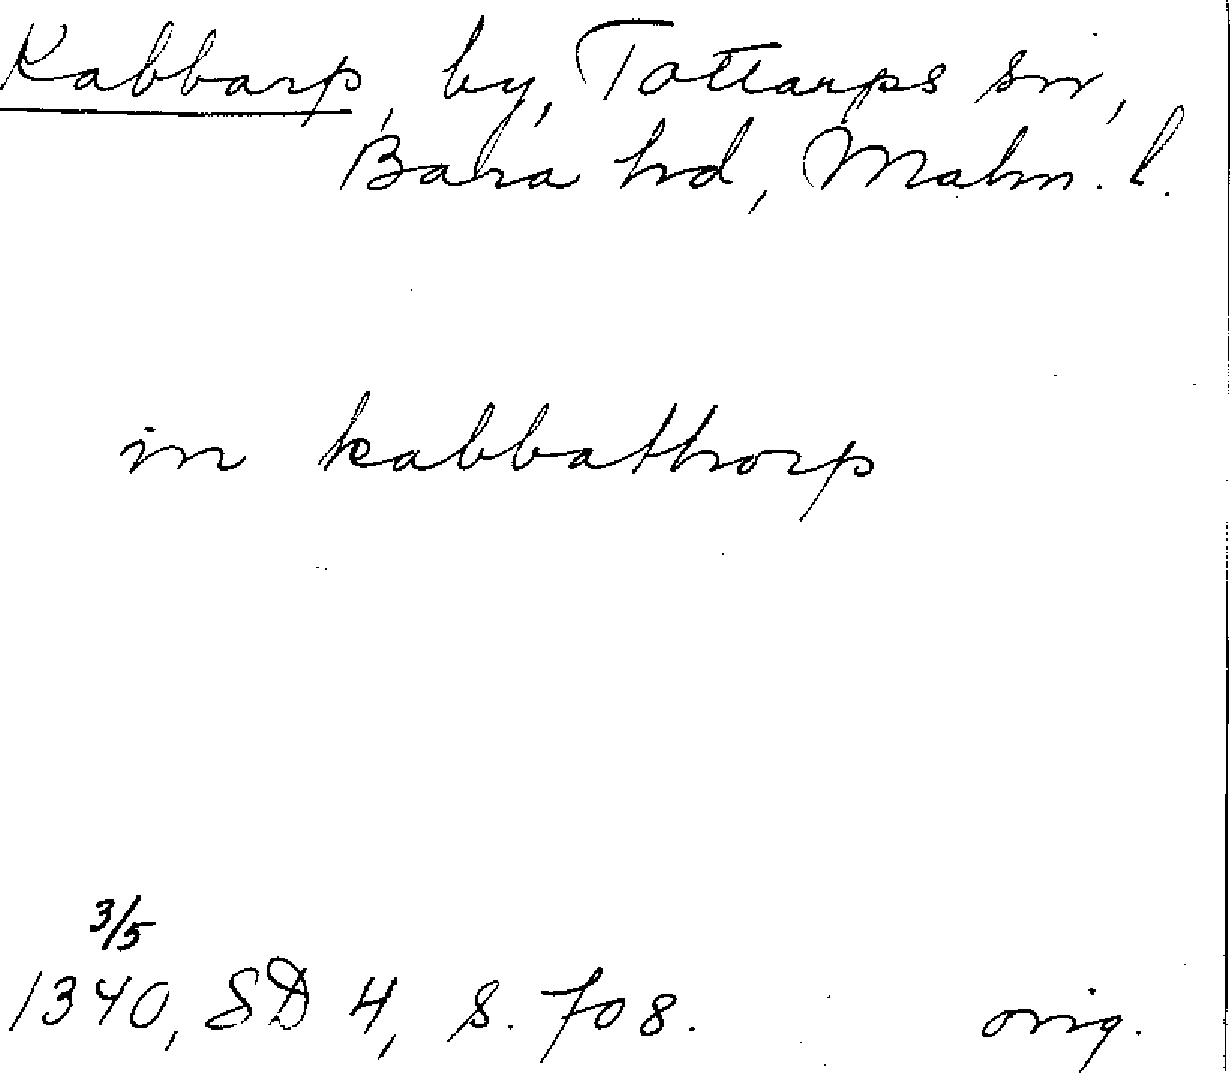 Kabbarp, by, Tottarps sn,
Bara hd, Malm. l.
in kabbathorp
3/5
1340, SD 4, s. 708. orig.